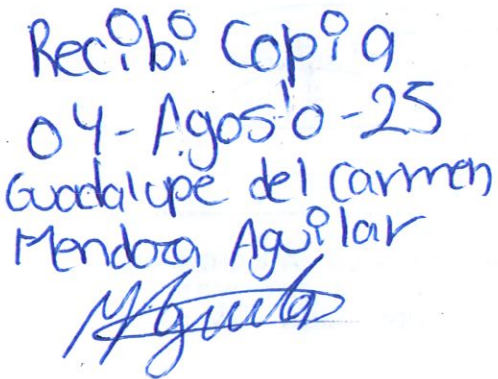 Recibi Copia
04-Agosto-25
Guadalupe del Carmen
Mendoza Aguilar